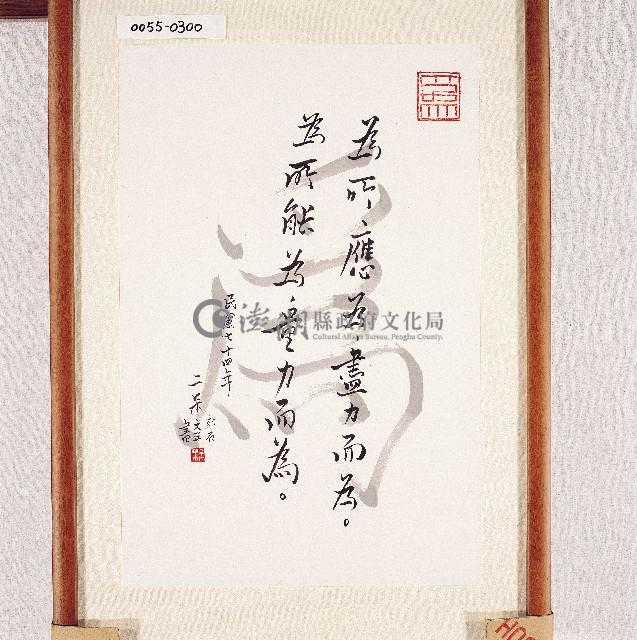 0055-0300
為所應為盡力而為。
為所能為量力而為。
民憲七十四年
二呆
澎湖縣政府文化局
Cultural Affairs Bureau, Penghu County.
為